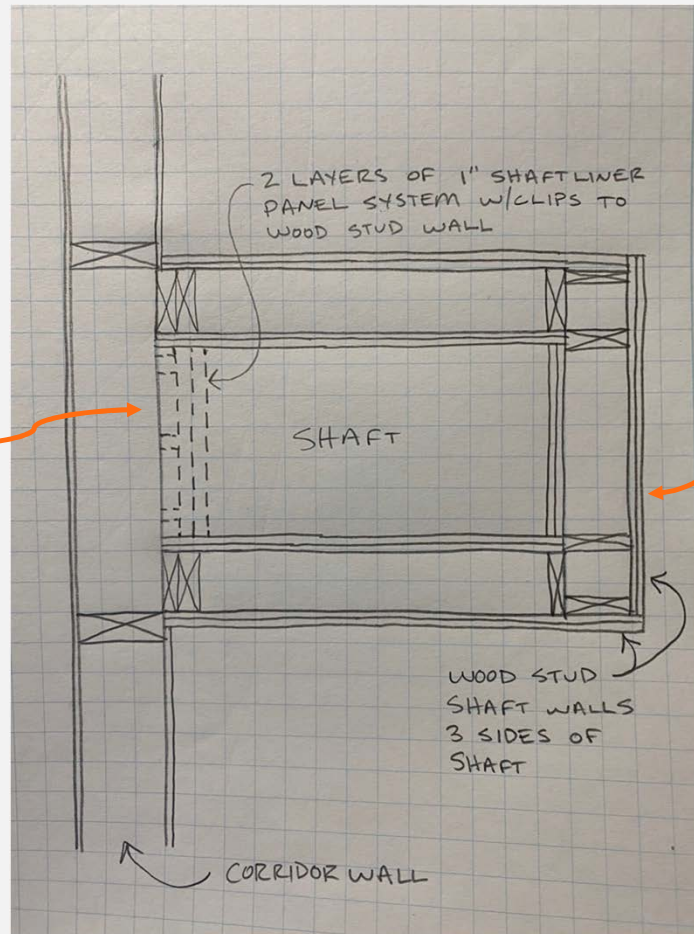 2 LAYERS OF 1" SHAFTLINER
PANEL SYSTEM W/CLIPS TO
WOOD STUD WALL
SHAFT
WOOD STUD
SHAFT WALLS
3 SIDES OF
SHAFT
CORRIDOR WALL